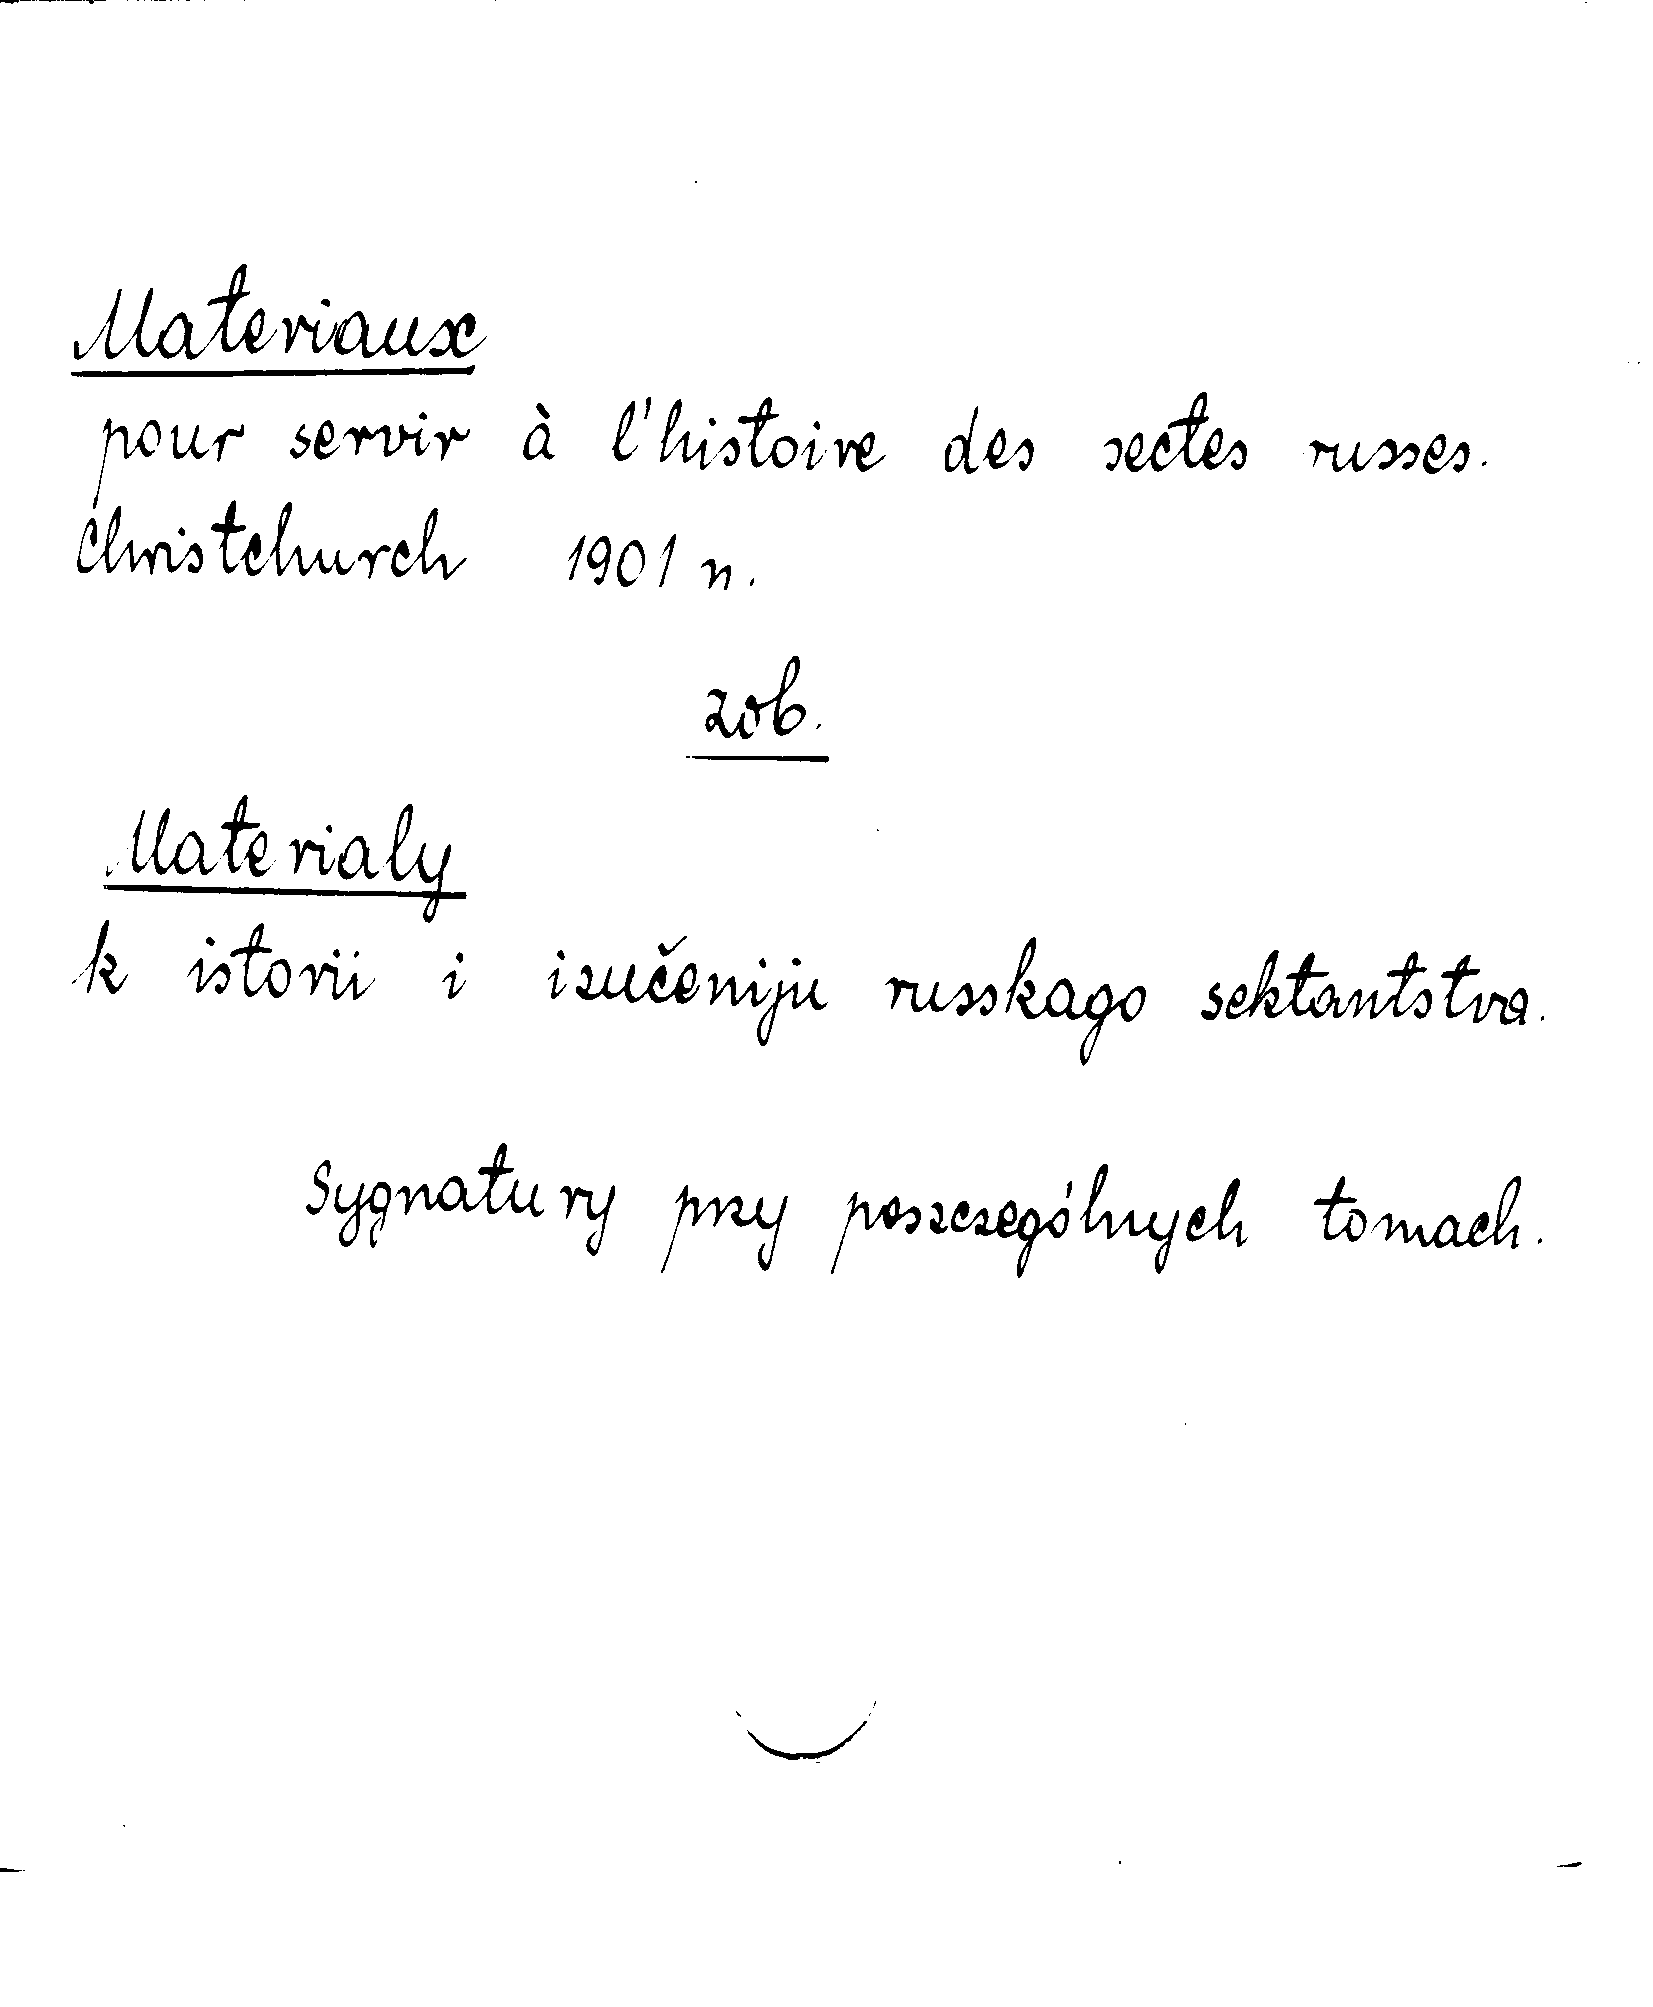 Materiaux
pour servir à l'histoire des sectes russes.
Christchurch 1901 n.
zob.
Materialy
k istorii i izučeniju russkago sektantstva.
Sygnatury przy poszczególnych tomach.